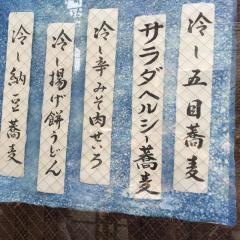 冷し五目蕎麦
サラダヘルシー蕎麦
冷し辛みそ肉せいろ
冷し揚げ餅うどん
冷し納豆蕎麦